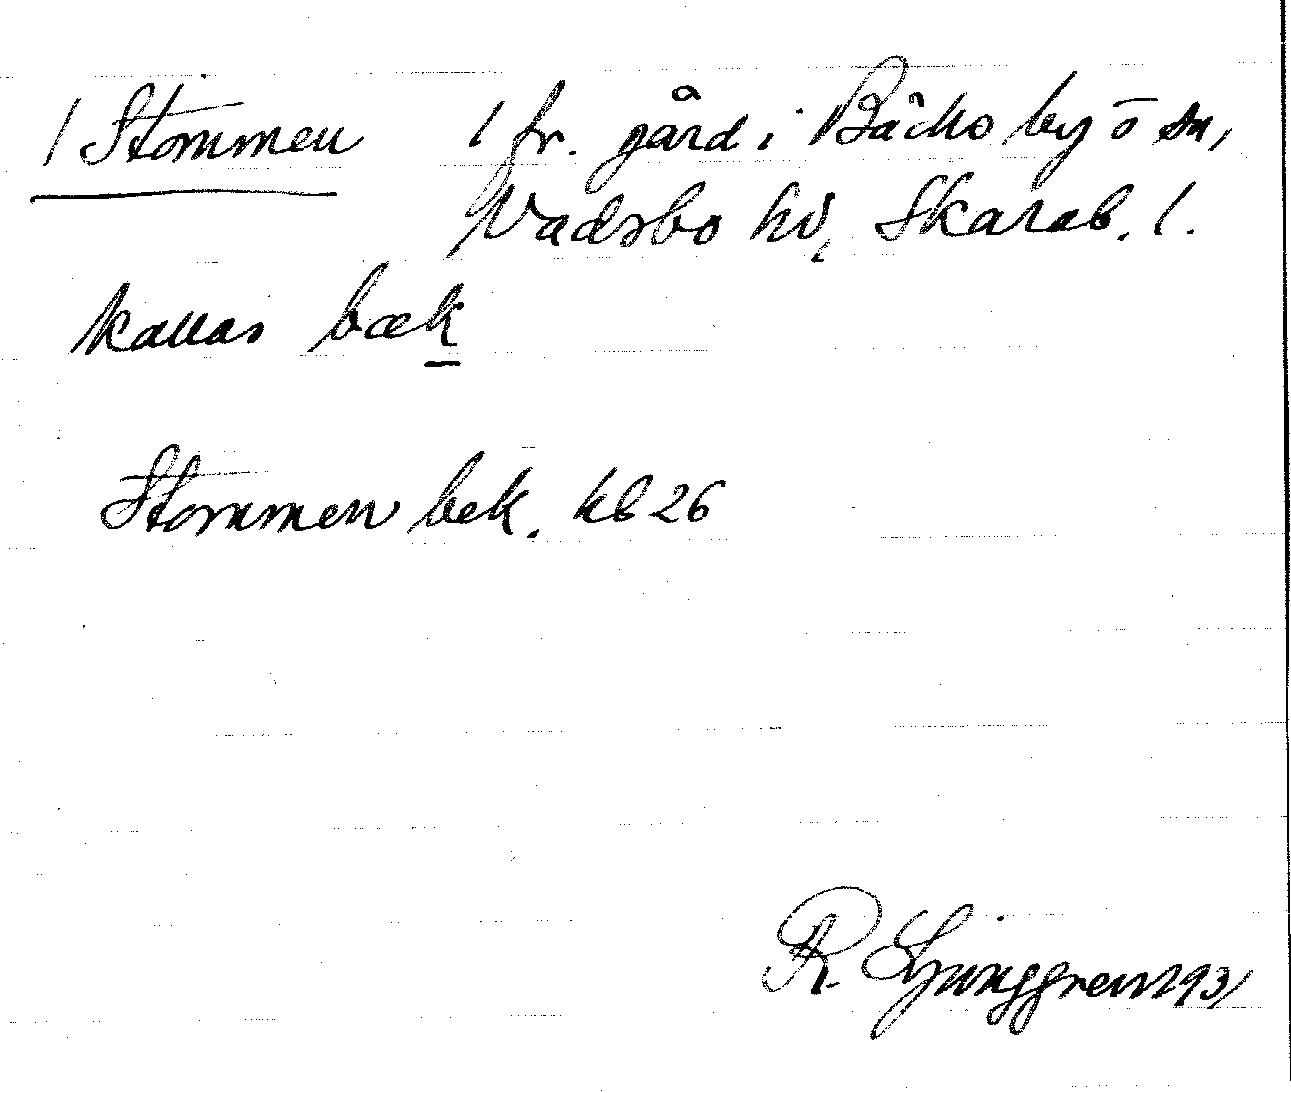 / Stommen / fr. gård i Bäcko by ō sn,
Vadsbo hd, Skarab. l.
kallas bæk
Stommen bek. kb 26
R. Ljunggren 1931